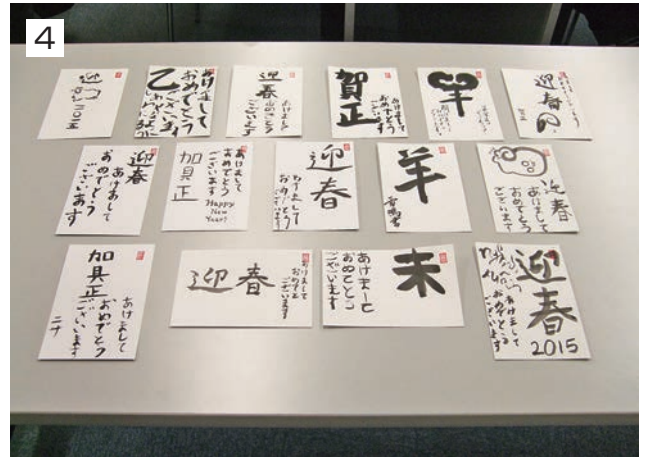 4
迎
2015
あけまして
おめでとう
ございます
乙
迎春
あけまして
おめでとう
ございます
賀正
あけまして
おめでとう
ございます
羊
迎春
迎春
あけおして
おめでとう
ございます
あけまして
おめでとう
ございます
加貝正
Happy
New
Year!
迎春
あけまして
おめでとう
ございます
羊
迎春
あけまして
おめでとう
ございます
加貝正
あけまして
おめでとう
ございます
ニナ
迎春
あけまして
おめでとう
ございます
未
あけまして
おめでとう
ございます
迎春
2015
あけまして
おめでとう
ございます